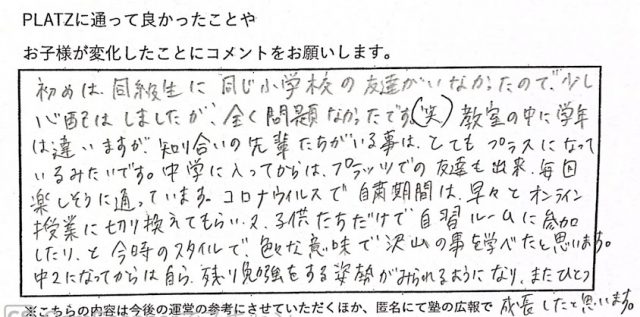 PLATZに通って良かったことや
お子様が変化したことにコメントをお願いします。
初めは、同級生に同じ小学校の友達がいなかったので、少し
心配はしましたが、全く問題なかったです(笑) 教室の中に学年
は違いますが、知り合いの先輩たちがいる事は、とてもプラスになって
いるみたいです。中学に入ってからは、プラッツでの友達も出来、毎回
楽しそうに通っています。コロナウィルスで自粛期間は、早々とオンライン
授業に切り換えてもらい、又、子供たちだけで自習ルームに参加
したり、と今時のスタイルで色々な意味で沢山の事を学べたと思います。
中2になってからは自ら、残り勉強をする姿勢がみられるようになり、またひとつ
成長したと思います。
※こちらの内容は今後の運営の参考にさせていただくほか、匿名にて塾の広報で